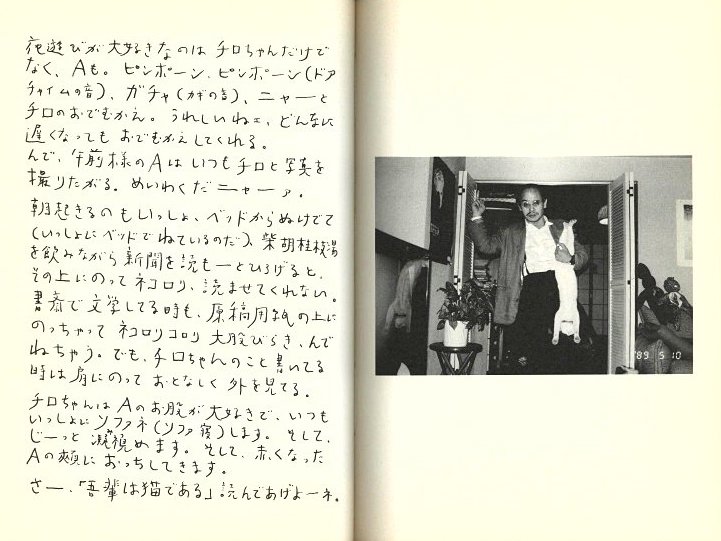 夜遊びが大好きなのは チロちゃんだけで
なく、Aも。ピンポーン、ピンポーン(ドア
チャイムの音)、ガチャ(カギの音)、ニャーと
チロのおでむかえ。うれしいねェ、どんなに
遅くなっても おでむかえしてくれる。
んで、午前様のAは いつもチロと写真を
撮りたがる。めいわくだニャーァ。
朝起きるのもいっしょ、ベッドからぬけでて
(いっしょにベッドでねているのだ)、柴胡桂枝湯
を飲みながら新聞を読もーとひろげると、
その上にのって ネコロリ、読ませてくれない。
書斎で文学してる時も、原稿用紙の上に
のっちゃって ネコロリコロリ 大股びらき、んで
ねちゃう。でも、チロちゃんのこと書いてる
時は肩にのって おとなしく外を見てる。
チロちゃんはAのお股が大好きで、いつも
いっしょにソファネ(ソファ寝)します。そして、
じーっと 凝視めます。そして、赤くなった
Aの頬に おっちしてきます。
さー、「吾輩は猫である」読んであげよーネ。
'89 5 10